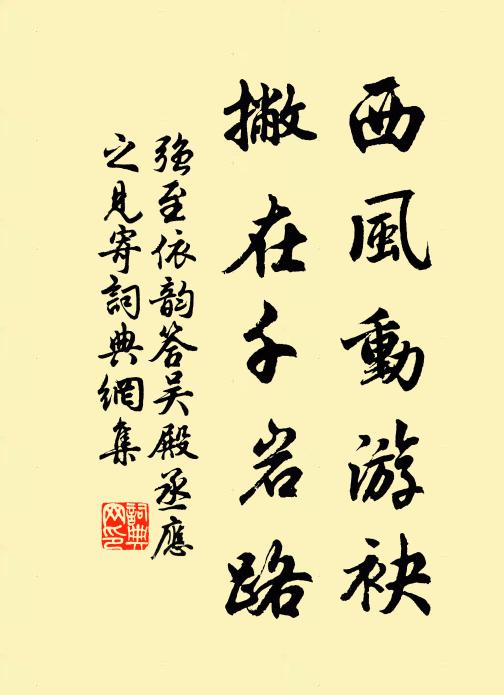 西風動游袂
撇在千岩路
强至依韵答吴殿丞應
之見寄詞典網集
詞典
网印